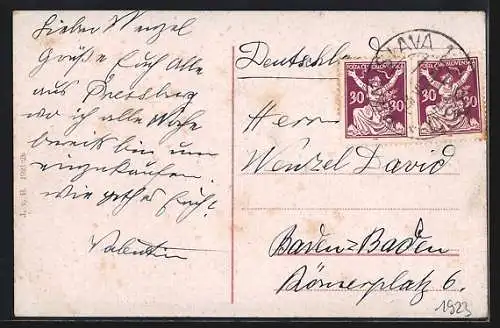 Lieber Wenzel
Grüße Euch Alle
aus Pressburg
wo ich alle Woche
bereits bin um
einzukaufen.
wie geht es Euch?
Valentin
J. v. B. 1921-23
Deutschland
LAVA 1
POŠTA ČESKOSLOVENSKÁ
30 30
POŠTA ČESKOSLOVENSKÁ
30 30
Herrn
Wenzel David
Baden=Baden
Römerplatz 6.
1923